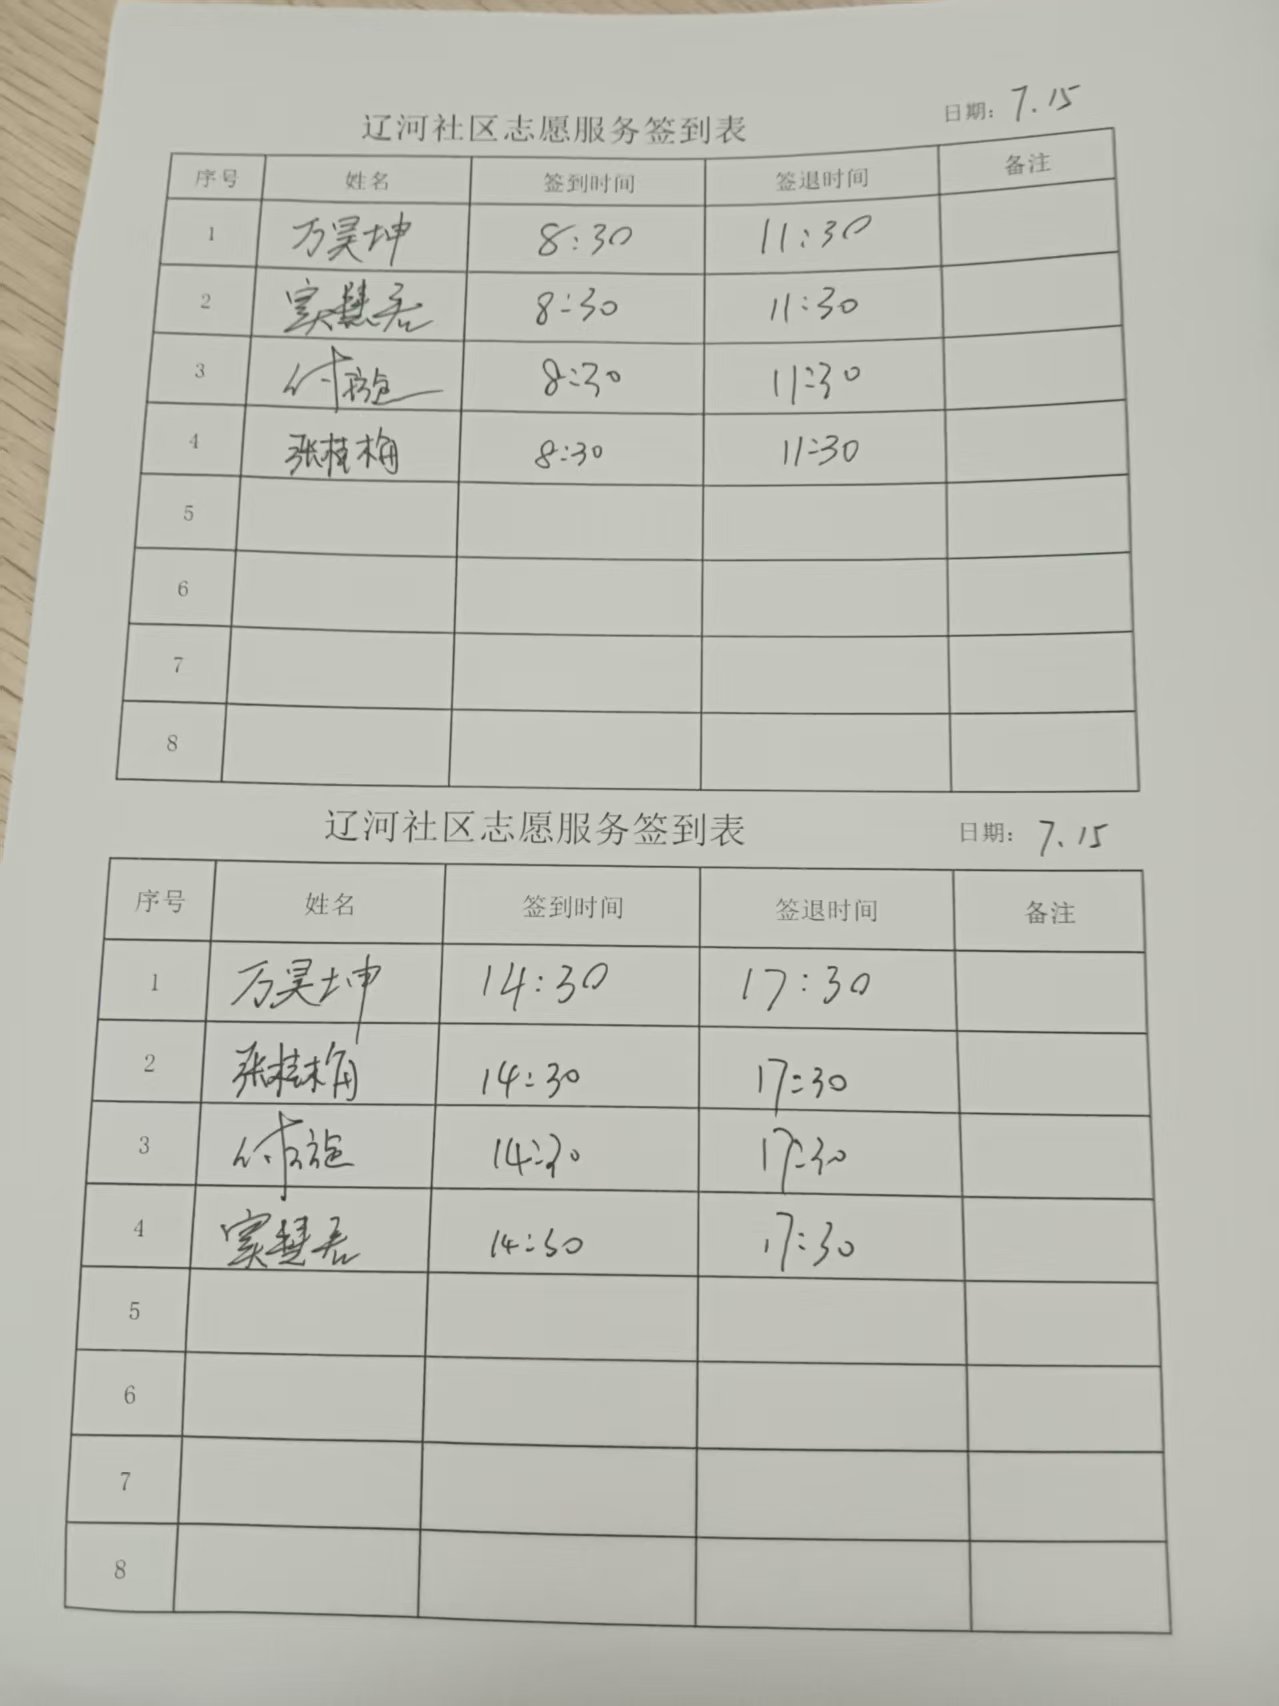 辽河社区志愿服务签到表 日期: 7.15
序号 姓名 签到时间 签退时间 备注
1 万昊坤 8:30 11:30
2 窦慧君 8:30 11:30
3 付旋 8:30 11:30
4 张桂梅 8:30 11:30
5
6
7
8
辽河社区志愿服务签到表 日期: 7.15
序号 姓名 签到时间 签退时间 备注
1 万昊坤 14:30 17:30
2 张桂梅 14:30 17:30
3 付旋 14:30 17:30
4 窦慧君 14:30 17:30
5
6
7
8